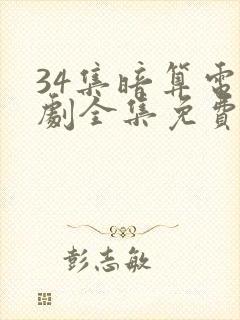 34集暗算电
劇全集免費
彭志敏